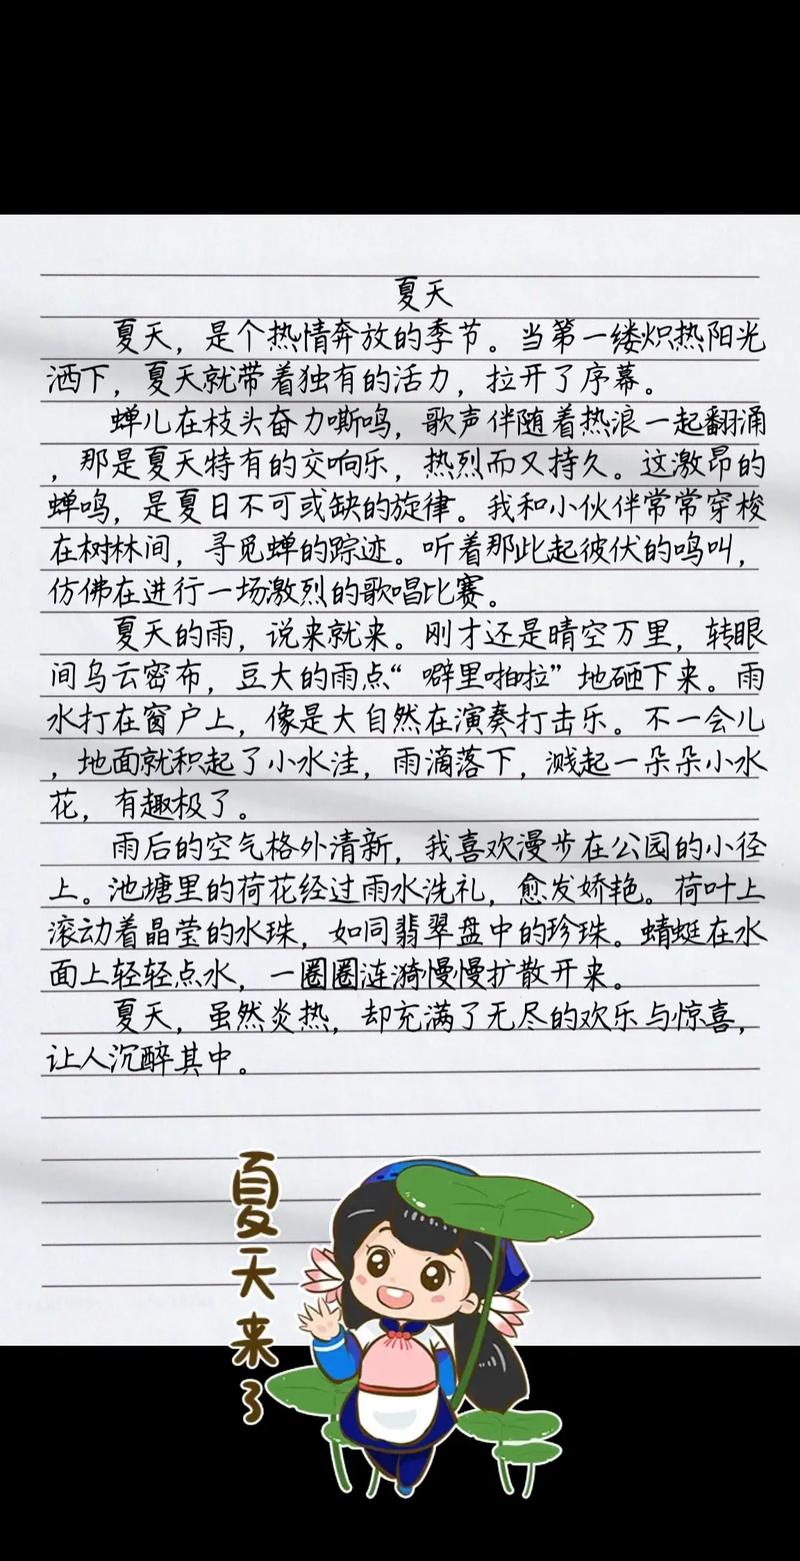 夏天
夏天，是个热情奔放的季节。当第一缕炽热阳光
洒下，夏天就带着独有的活力，拉开了序幕。
蝉儿在枝头奋力嘶鸣，歌声伴随着热浪一起翻涌
，那是夏天特有的交响乐，热烈而又持久。这激昂的
蝉鸣，是夏日不可或缺的旋律。我和小伙伴常常穿梭
在树林间，寻觅蝉的踪迹。听着那此起彼伏的鸣叫，
仿佛在进行一场激烈的歌唱比赛。
夏天的雨，说来就来。刚才还是晴空万里，转眼
间乌云密布，豆大的雨点“噼里啪拉”地砸下来。雨
水打在窗户上，像是大自然在演奏打击乐。不一会儿
，地面就积起了小水洼，雨滴落下，溅起一朵朵小水
花，有趣极了。
雨后的空气格外清新，我喜欢漫步在公园的小径
上。池塘里的荷花经过雨水洗礼，愈发娇艳。荷叶上
滚动着晶莹的水珠，如同翡翠盘中的珍珠。蜻蜓在水
面上轻轻点水，一圈圈涟漪慢慢扩散开来。
夏天，虽然炎热，却充满了无尽的欢乐与惊喜，
让人沉醉其中。
夏天来了